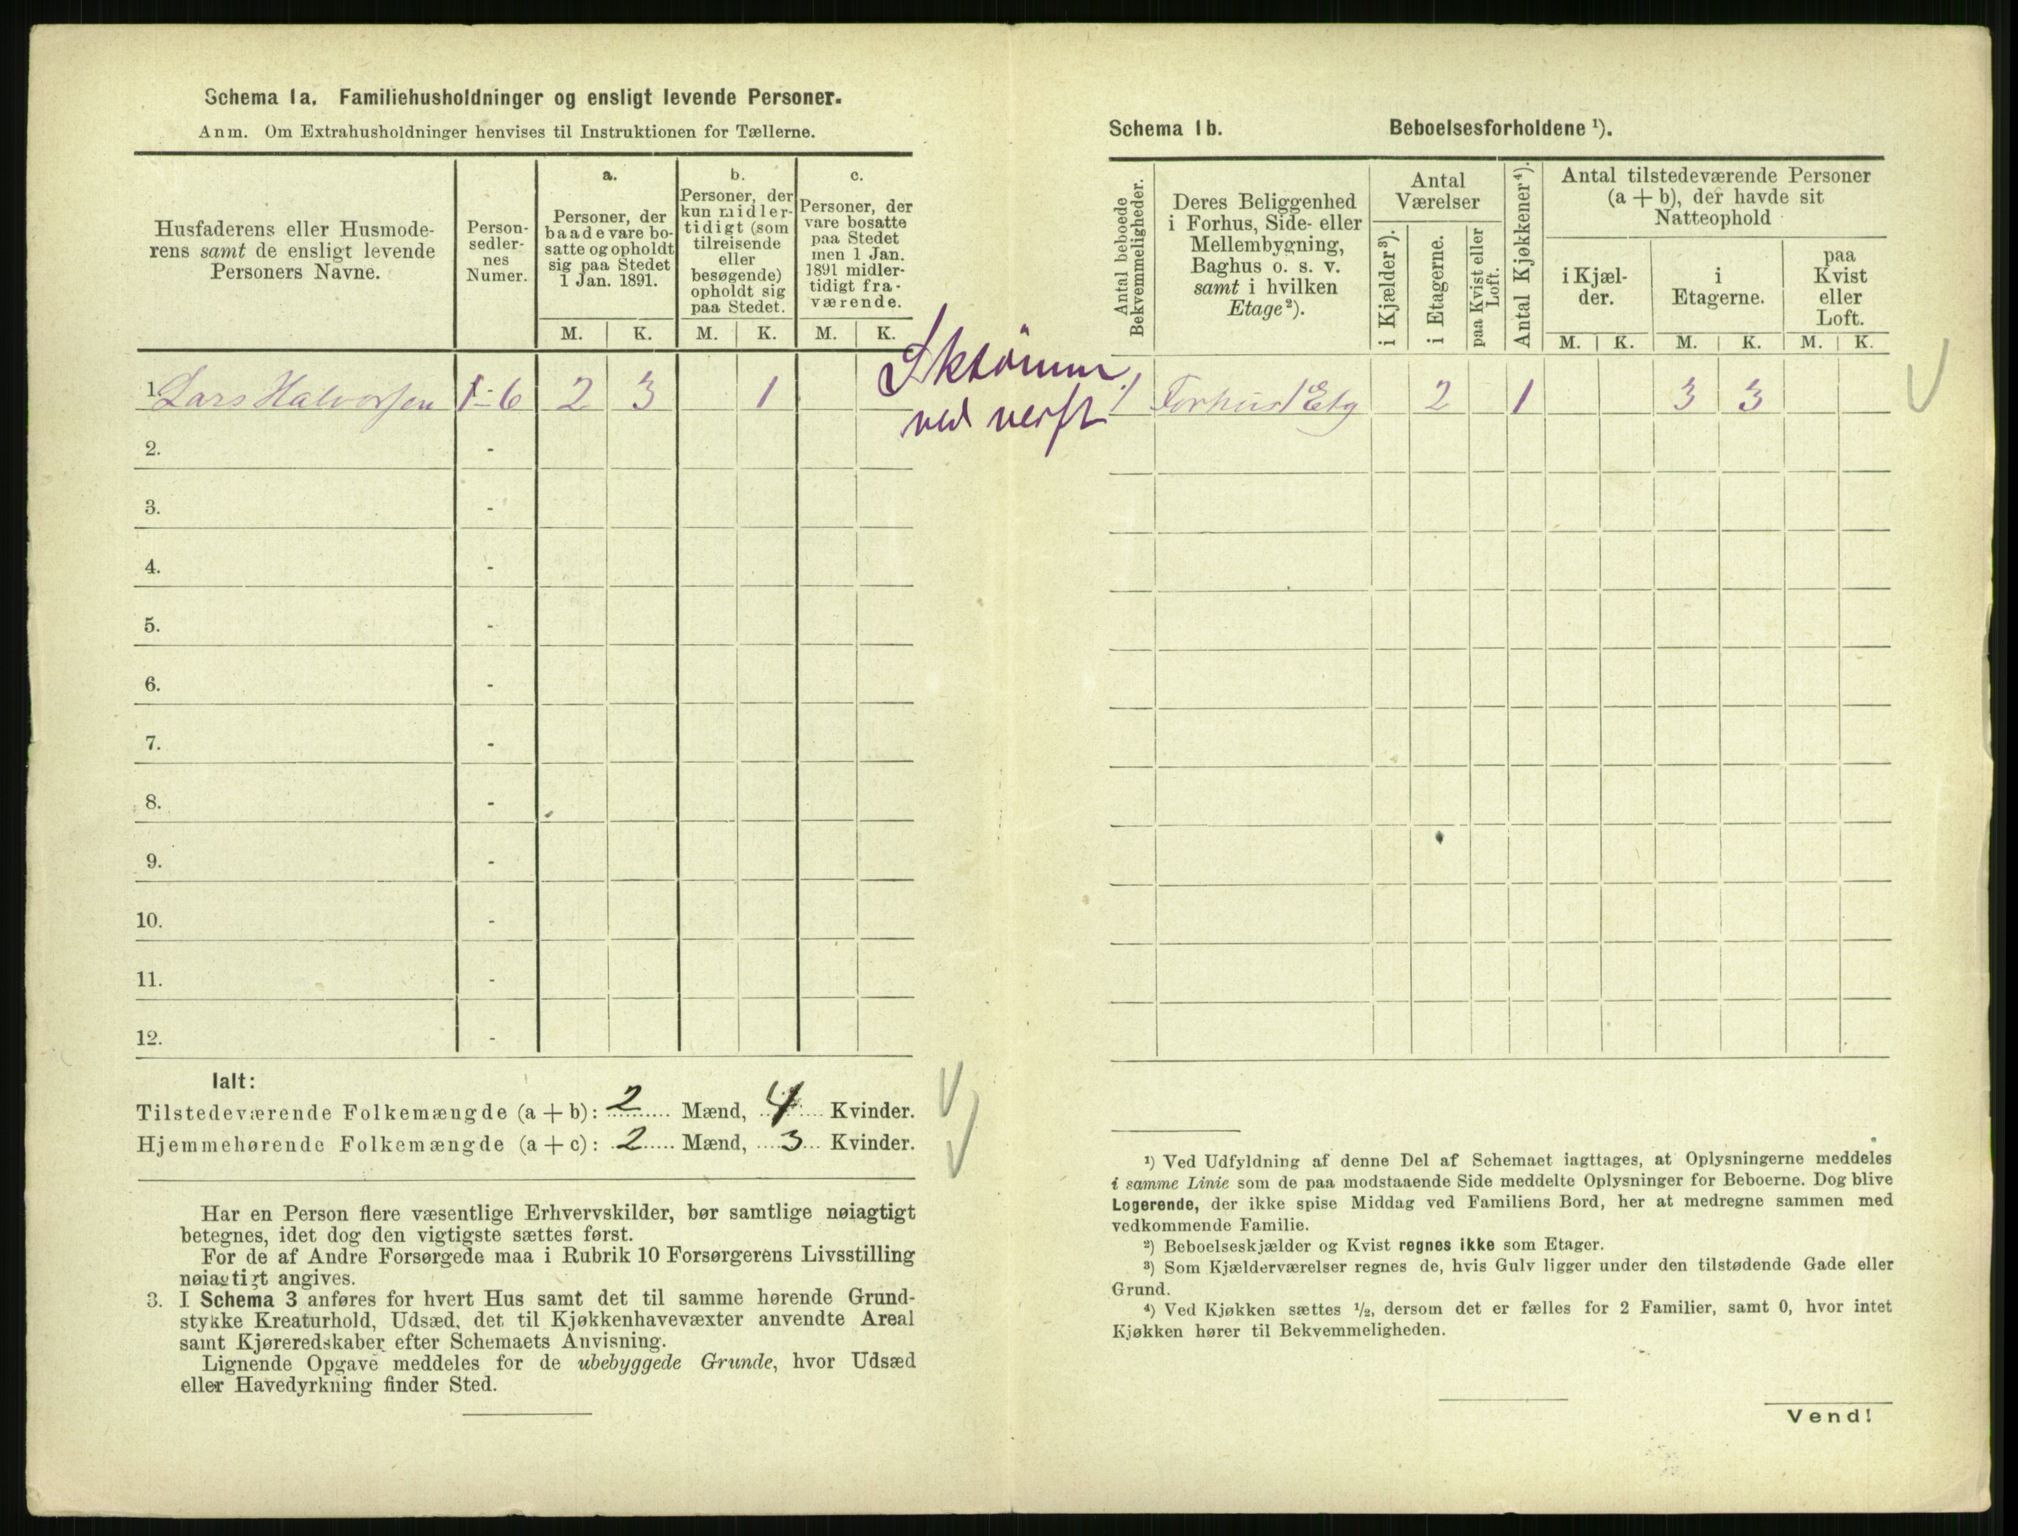 Schema 1a. Familiehusholdninger og ensligt levende Personer.
Anm. Om Extrahusholdninger henvises til Instruktionen for Tællerne.
Husfaderens eller Husmode-
rens samt de ensligt levende
Personers Navne.
Person-
sedler-
nes
Numer.
a.
Personer, der
baade vare bo-
satte og opholdt
sig paa Stedet
1 Jan. 1891.
b.
Personer, der
kun midler-
tidigt (som
tilreisende
eller
besøgende)
opholdt sig
paa Stedet.
c.
Personer, der
vare bosatte
paa Stedet
men 1 Jan.
1891 midler-
tidigt fra-
værende.
M. K. M. K. M. K.
1. Lars Halvorsen 1-6 2 3 1
2. -
3. -
4. -
5. -
6. -
7. -
8. -
9. -
10. -
11. -
12. -
ved verft
Ialt:
Tilstedeværende Folkemængde (a + b): 2 Mænd, 4 Kvinder.
Hjemmehørende Folkemængde (a + c): 2 Mænd, 3 Kvinder.
Har en Person flere væsentlige Erhvervskilder, bør samtlige nøiagtigt
betegnes, idet dog den vigtigste sættes først.
For de af Andre Forsørgede maa i Rubrik 10 Forsørgerens Livsstilling
nøiagtigt angives.
3. I Schema 3 anføres for hvert Hus samt det til samme hørende Grund-
stykke Kreaturhold, Udsæd, det til Kjøkkenhavevæxter anvendte Areal
samt Kjøreredskaber efter Schemaets Anvisning.
Lignende Opgave meddeles for de ubebyggede Grunde, hvor Udsæd
eller Havedyrkning finder Sted.
Schema 1b. Beboelsesforholdene ¹).
Antal beboede
Bekvemmeligheder.
Deres Beliggenhed
i Forhus, Side- eller
Mellembygning,
Baghus o. s. v.
samt i hvilken
Etage²).
Antal
Værelser
i Kjælder³).
i Etagerne.
paa Kvist eller
Loft.
Antal Kjøkkener⁴).
Antal tilstedeværende Personer
(a + b), der havde sit
Natteophold
i Kjæl-
der.
i
Etagerne.
paa
Kvist
eller
Loft.
M. K. M. K. M. K.
1 Forhus 1 Etg 2 1 3 3
¹) Ved Udfyldning af denne Del af Schemaet iagttages, at Oplysningerne meddeles
i samme Linie som de paa modstaaende Side meddelte Oplysninger for Beboerne. Dog blive
Logerende, der ikke spise Middag ved Familiens Bord, her at medregne sammen med
vedkommende Familie.
²) Beboelseskjælder og Kvist regnes ikke som Etager.
³) Som Kjælderværelser regnes de, hvis Gulv ligger under den tilstødende Gade eller
Grund.
⁴) Ved Kjøkken sættes ½, dersom det er fælles for 2 Familier, samt 0, hvor intet
Kjøkken hører til Bekvemmeligheden.
Vend!